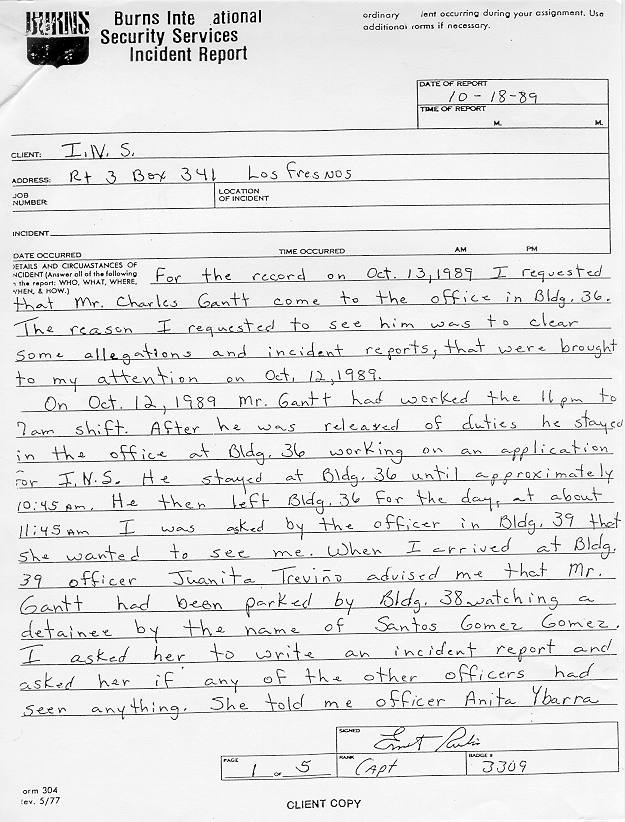 BURNS
Burns Inte ational
Security Services
Incident Report
ordinary ent occurring during your assignment. Use
additional orms if necessary.
DATE OF REPORT
10-18-89
TIME OF REPORT
M. M.
CLIENT: I.N.S.
ADDRESS: Rt 3 Box 341 Los Fresnos
JOB
NUMBER
LOCATION
OF INCIDENT
INCIDENT
DATE OCCURRED TIME OCCURRED AM PM
DETAILS AND CIRCUMSTANCES OF
NCIDENT (Answer all of the following
n the report: WHO, WHAT, WHERE,
WHEN, & HOW.)
For the record on Oct. 13,1989 I requested
that Mr. Charles Gantt come to the office in Bldg. 36.
The reason I requested to see him was to clear
some allegations and incident reports, that were brought
to my attention on Oct, 12,1989.
On Oct. 12,1989 Mr. Gantt had worked the 11pm to
7am shift. After he was released of duties he stayed
in the office at Bldg. 36 working on an application
for I.N.S. He stayed at Bldg. 36 until approximately
10:45 am. He then left Bldg. 36 for the day, at about
11:45 am I was asked by the officer in Bldg. 39 that
she wanted to see me. When I arrived at Bldg.
39 officer Juanita Treviño advised me that Mr.
Gantt had been parked by Bldg. 38 watching a
detainee by the name of Santos Gomez Gomez.
I asked her to write an incident report and
asked her if any of the other officers had
seen anything. She told me officer Anita Ybarra
SIGNED
PAGE
1 OF 5
RANK
Capt
BADGE #
3309
orm 304
ev. 5/77
CLIENT COPY